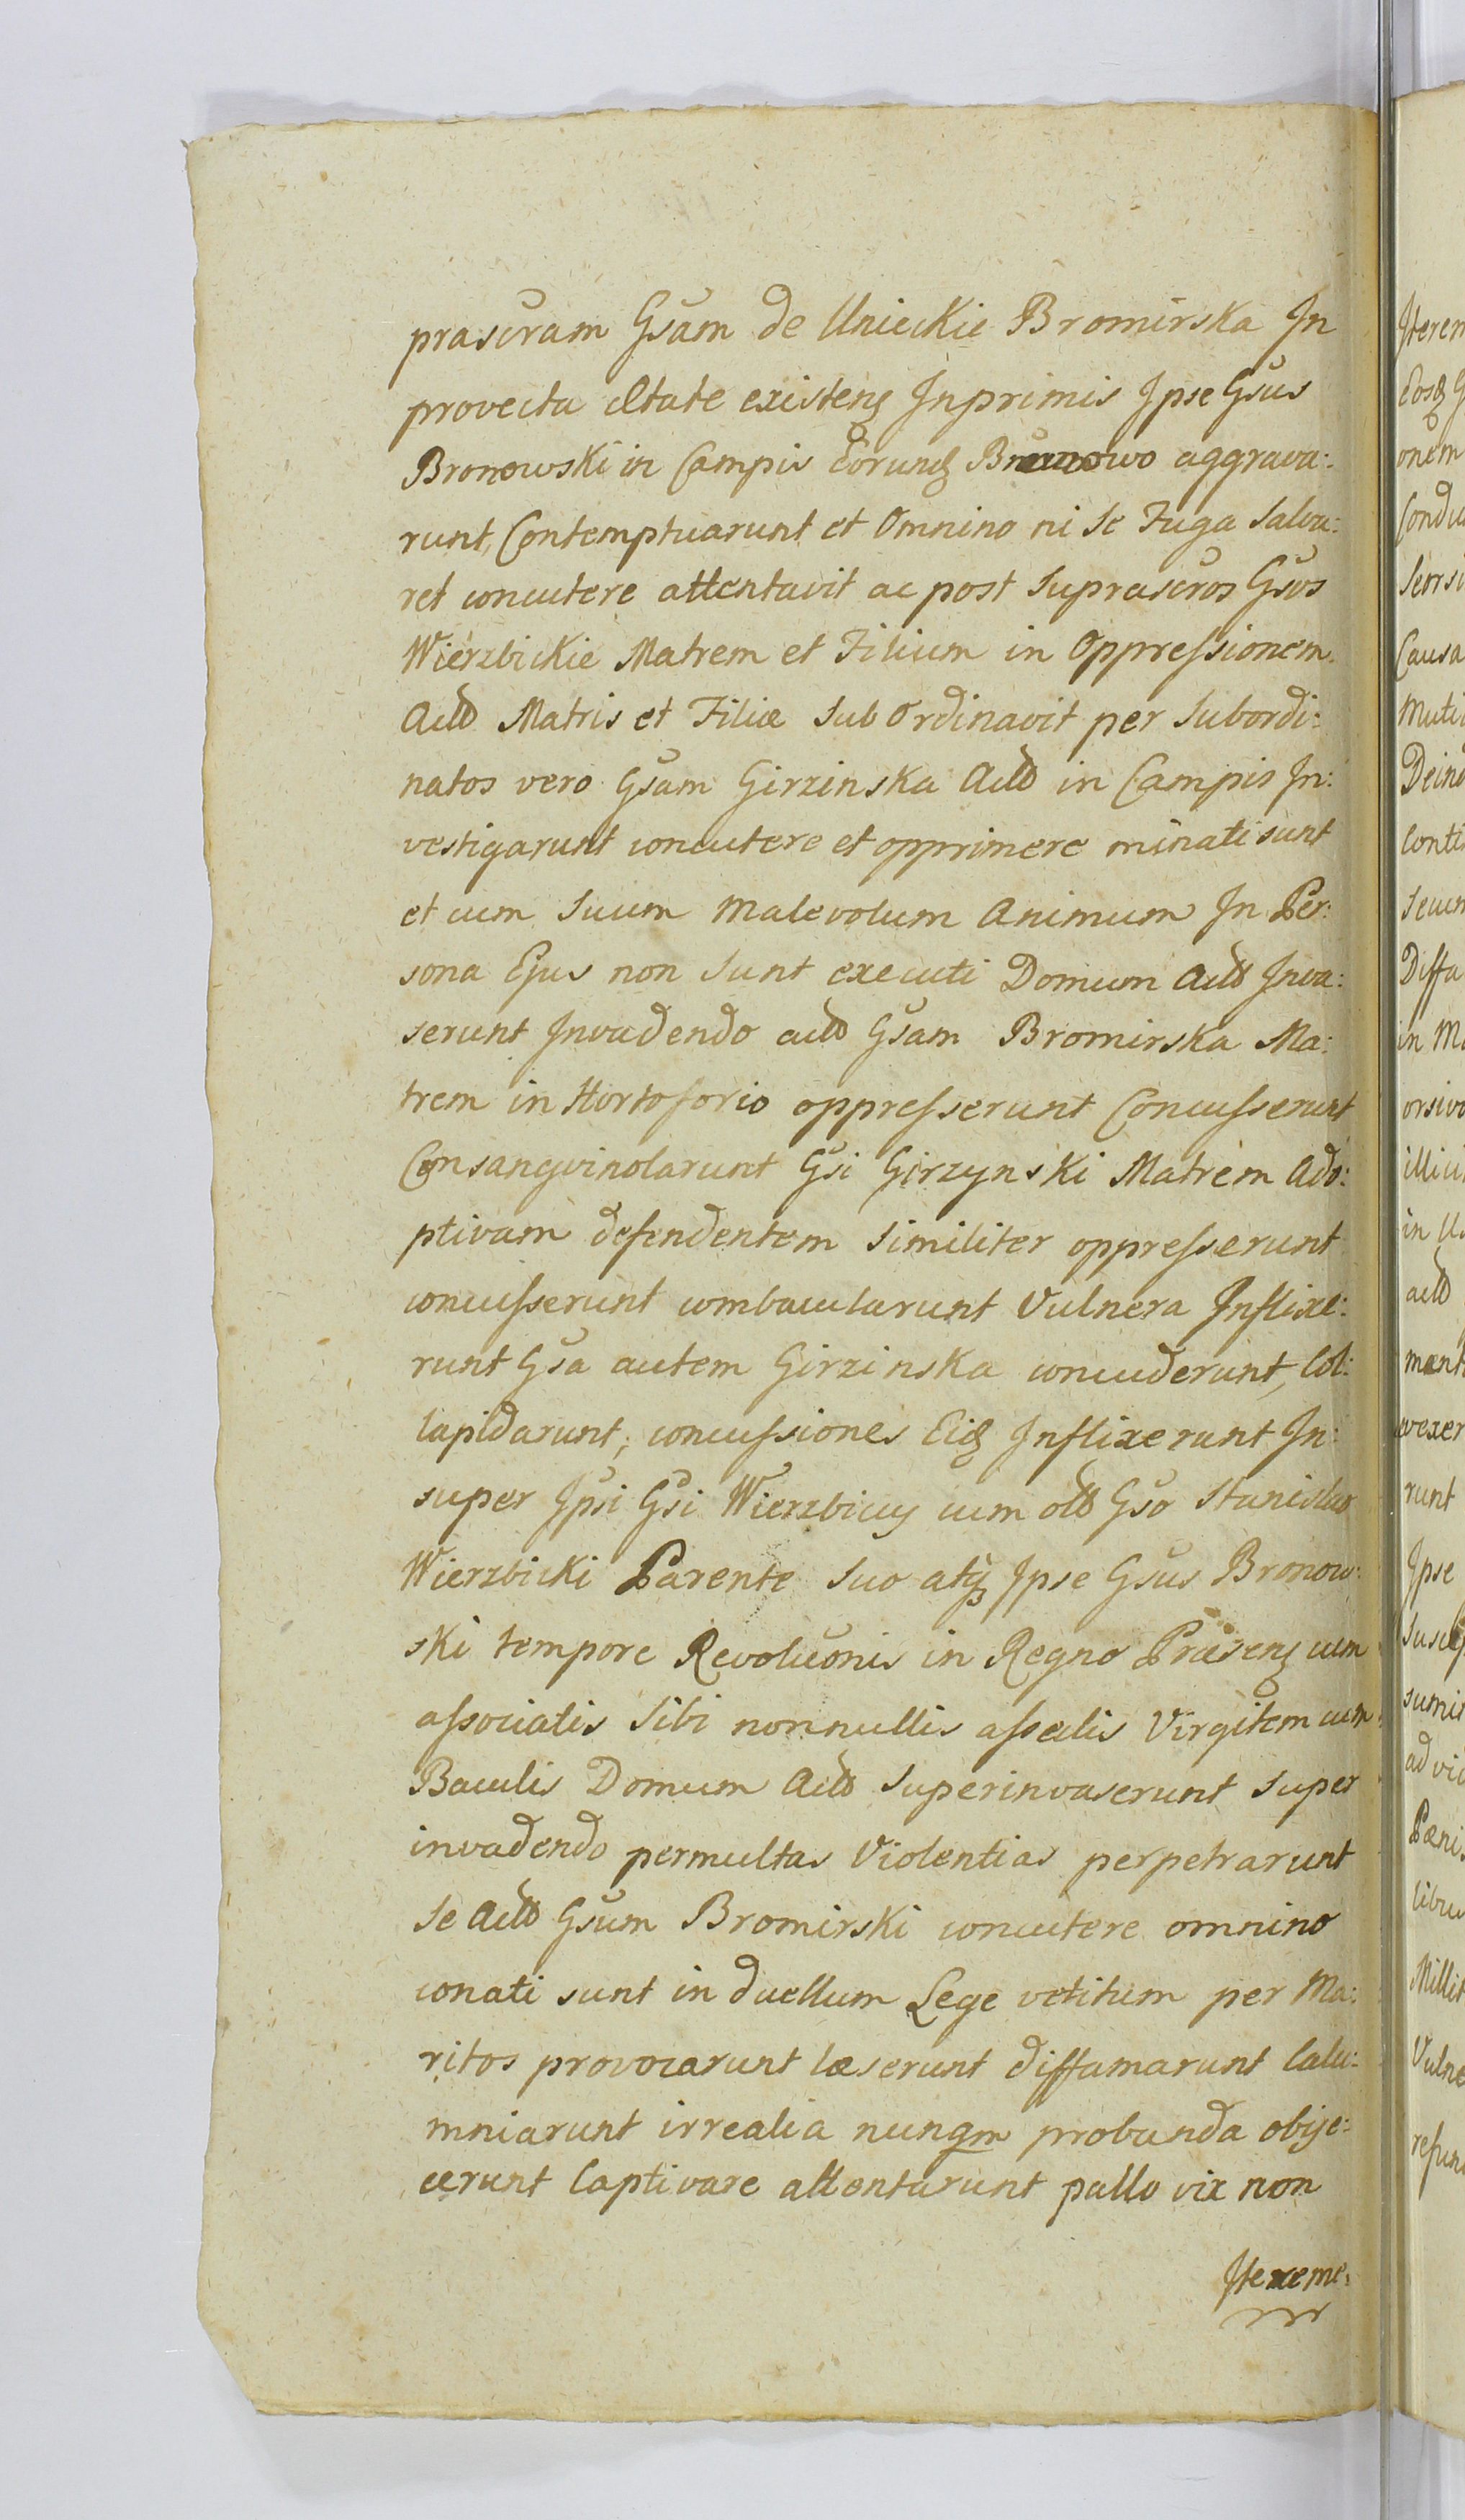 prascram Gsam de Unieckie Bromirska In
provecta Etate existen̄ Inprimis Ipse Gsus
Bronowski in Campis Eorund Bronowo aggrava:
runt, Contemptuarunt et Omnino ni se Fuga salva:
ret concutere attentavit ac post suprascros Gsos
Wierzbickie Matrem et Filium in Oppressionem
Actd Matris et Filiæ sub Ordinavit per subordi:
natos vero Gsam Girzinska Actd in Campis In:
vestigarunt concutere et opprimere minati sunt
et cum suum malevolum Animum In Per:
sona Ejus non sunt executi Domum Actd Inva:
serunt Invadendo actd Gsam Bromirska Ma:
trem in Hortoforio oppresserunt Concusserunt
Consangvinolarunt Gsi Girzynski Matrem Ado:
ptivam defendentem similiter oppresserunt
concusserunt combacularunt Vulnera Inflixe:
runt Gsa autem Girzinska concuderunt, Col:
lapidarunt; concussiones Eid Inflixerunt In:
super Ipsi Gsi Wierzbiccy cum old Gso Stanislao
Wierzbicki Parente suo atq Ipse Gsus Bronow:
ski tempore Revoluonis in Regno Præsen cum
associatis sibi nonnullis asseclis Virgitem cum
Baculis Domum Actd superinvaserunt super
invadendo permultas Violentias perpetrarunt
se Actd Gsum Bromirski concutere omnino
conati sunt in duellum Lege vetitum per Ma:
ritos provocarunt læserunt diffamarunt Calu:
mniarunt irrealia nunqm probanda obije:
cerunt Captivare attentarunt pallo vix non
Itereme: